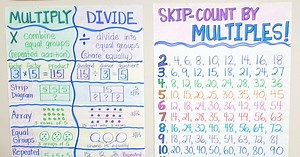 MULTIPLY
DIVIDE
X combine equal groups
(repeated addition)
÷ divide into equal groups
(share equally)
factor factor product
3 × 5 = 15
15 ÷ 3 = 5
Strip Diagram
15
Array
Equal Groups
Repeated
Repeated
SKIP-COUNT BY
MULTIPLES!
2, 4, 6, 8, 10, 12, 14, 16, 18
3, 6, 9, 12, 15, 18, 21, 24, 27
4, 8, 12, 16, 20, 24, 28, 32, 36
5, 10, 15, 20, 25, 30, 35, 40, 45
6, 12, 18, 24, 30, 36, 42, 48, 54
7, 14, 21, 28, 35, 42, 49, 56, 63
8, 16, 24, 32, 40, 48, 56, 64, 72
9, 18, 27, 36, 45, 54, 63, 72, 81
10, 20, 30, 40, 50, 60, 70, 80, 90